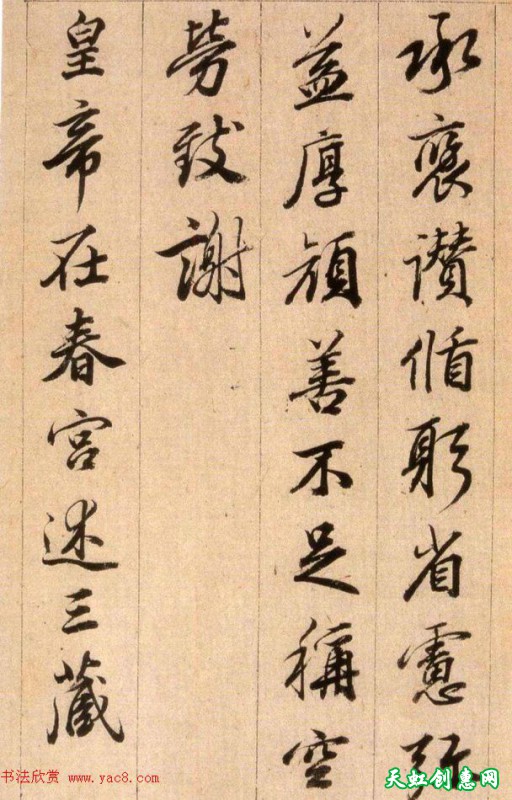 承褒讃循躬省慮弥
益厚顔善不足稱空
勞致謝
皇帝在春宮述三藏
书法欣赏 www.yac8.com
天虹创惠网